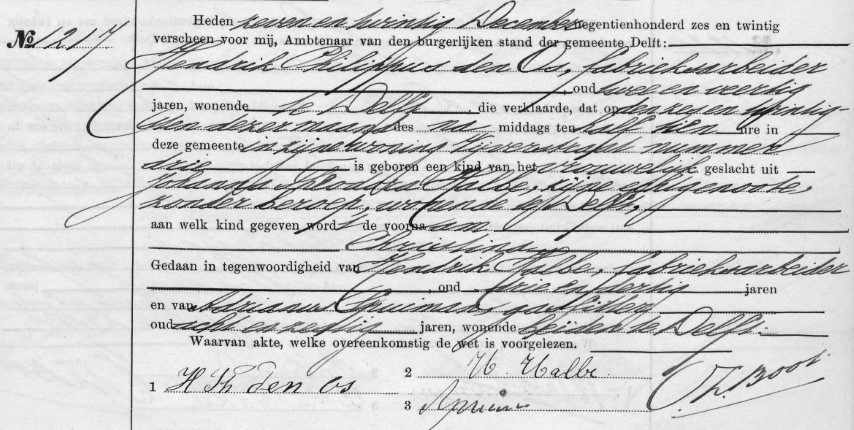 Heden zeven en twintig December negentienhonderd zes en twintig
№ 1217 verscheen voor mij, Ambtenaar van den burgerlijken stand der gemeente Delft:
Hendrik Philippus den Os, fabrieksarbeider
, oud twee en veertig
jaren, wonende te Delft, die verklaarde, dat op den zes en twintig-
sten dezer maand des na middags ten half tien ure in
deze gemeente in zijne woning nummer
drie is geboren een kind van het vrouwelijk geslacht uit
Halbe, zijne echtgenoote,
zonder beroep, wonende te Delft,
aan welk kind gegeven word t de voorna am
Christina
Gedaan in tegenwoordigheid van Hendrik Halbe, fabrieksarbeider
, oud drie en dertig jaren
en van Adrianus
oud acht en zestig jaren, wonende beiden te Delft.
Waarvan akte, welke overeenkomstig de wet is voorgelezen.
1 H Ph den Os
2 H. Halbe
3